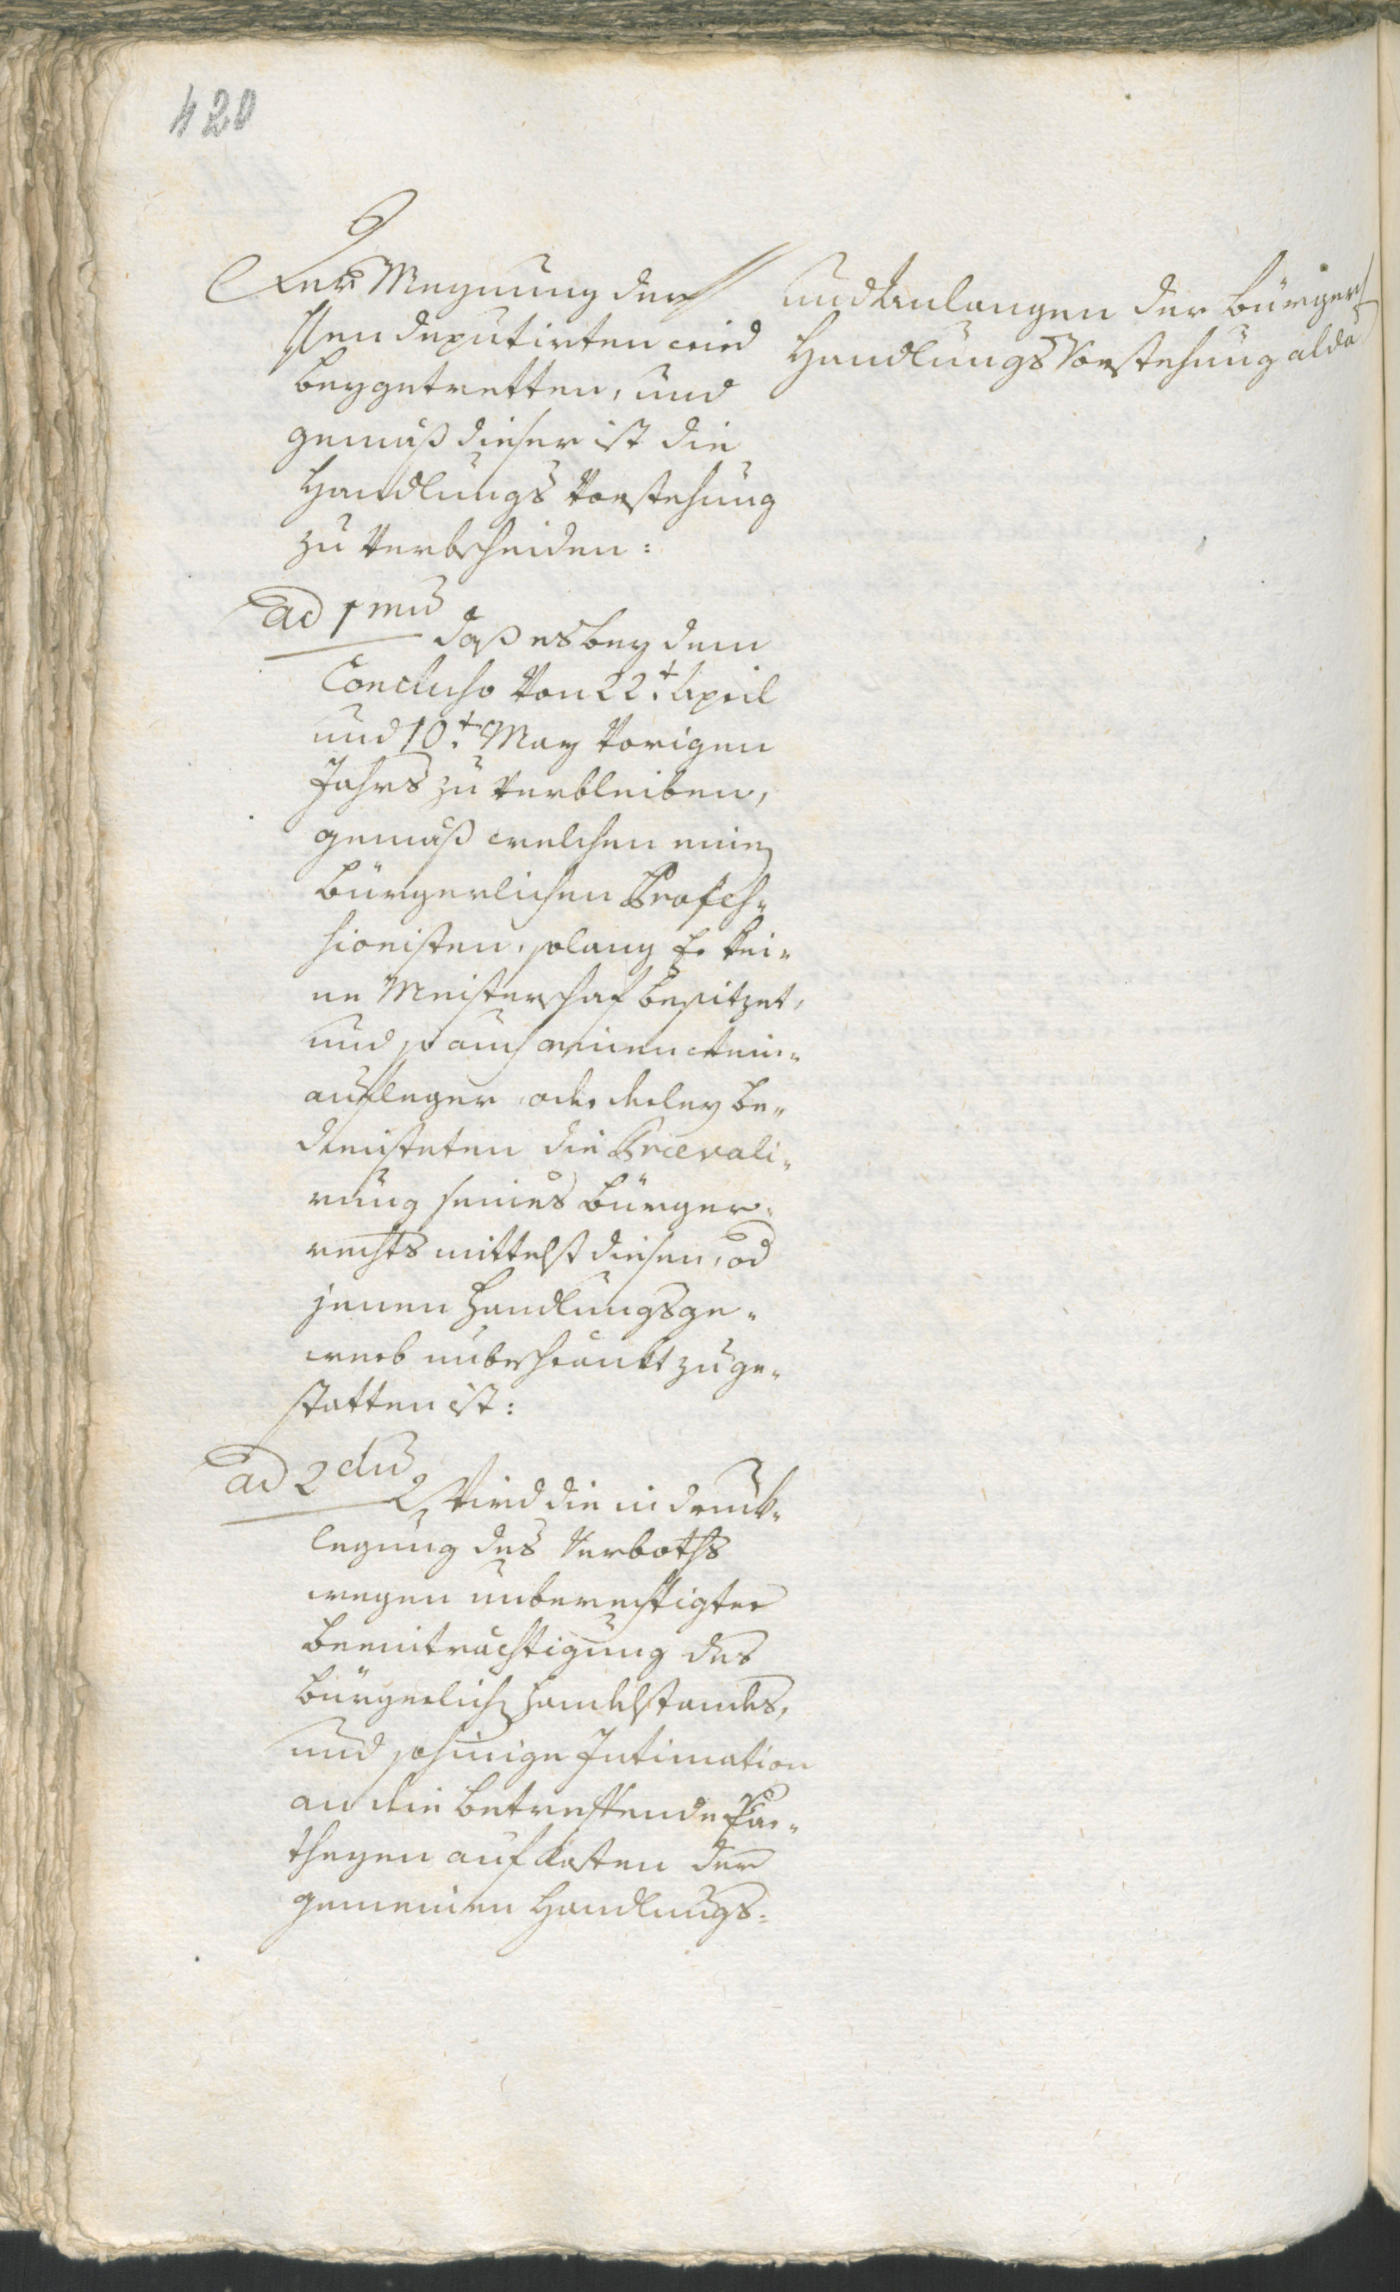 420
Der Meynung der
Hen deputirten wird
beygetretten, und
gemäß dieser ist die
Handlungs Vorstehung
zu verbscheiden:
ad 1mũ daß es bey dem
Concluso von 22.t April
und 10.t May vorigen
Jahrs zu verbleiben,
gemäß welchen einen
bürgerlichen Profeh-
sionisten, solang Er kei-
ne Meisterschaf besitzet,
und so auch einen wein-
aufleger oder derley be-
diensteten die Prævali-
rung seines bürger-
rechts mittelst diesen, od
jenen Handlungsge-
werb unbeschränkt zu ge-
statten ist:
ad 2dũ Wird die in druk-
legung des Verboths
wegen unberechtigter
beeinträchtigung des
bürgerlich Handelstandes,
und sohinige Intimation
an die betreffende Par-
theyen auf Kosten der
gemeinen Handlungs-
und Anlangen der bürgerl
Handlungs Vorstehung alda